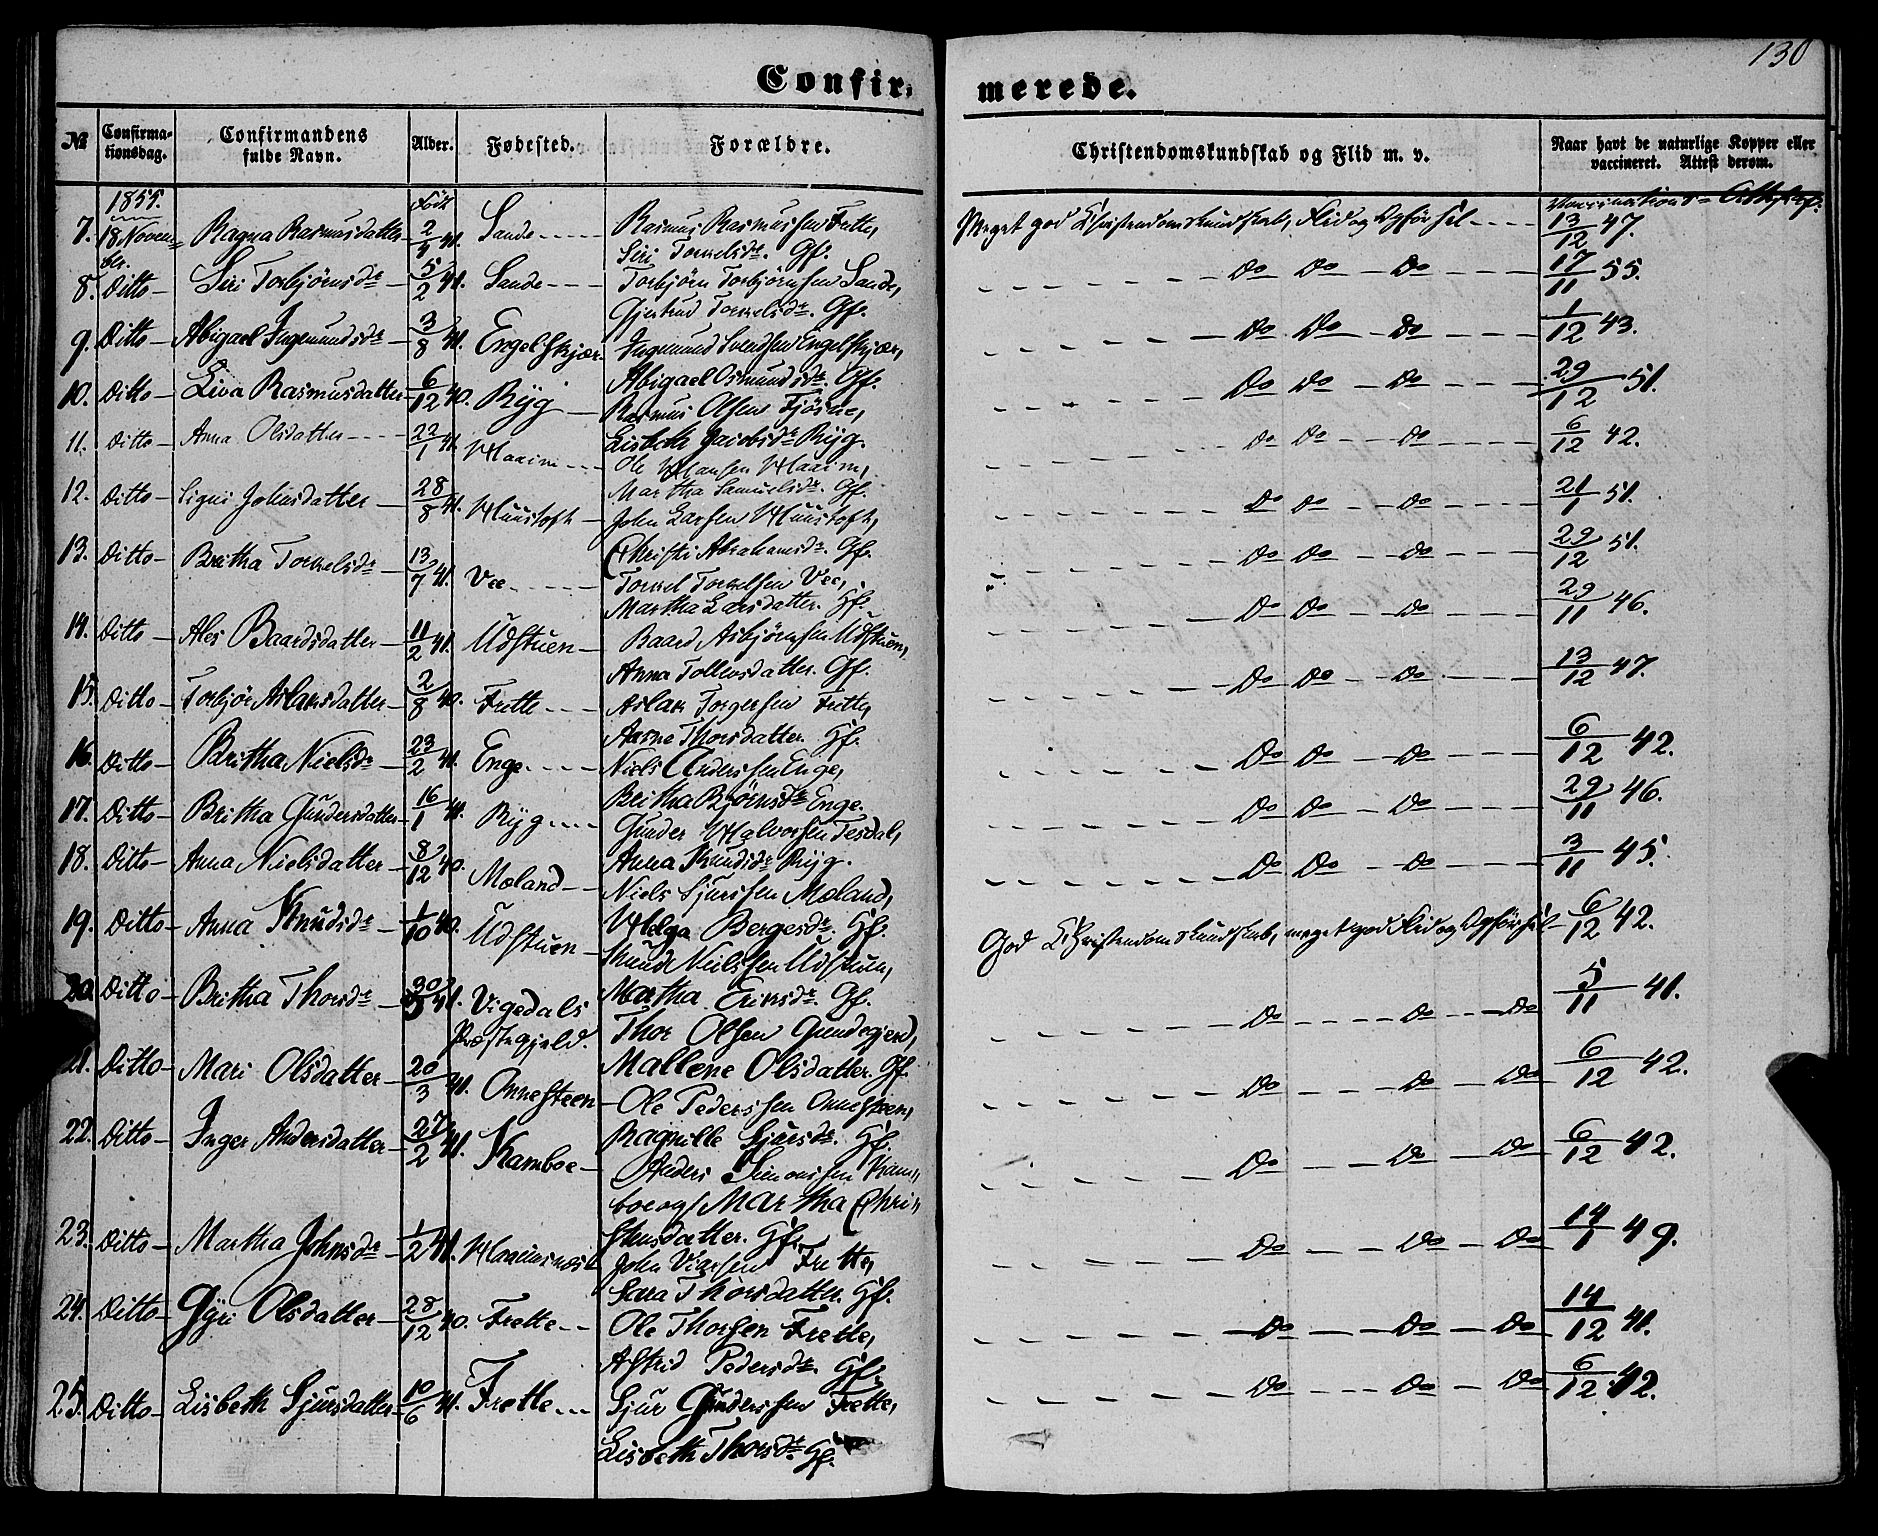 130
Confir- merede.
№ Confirma-tionsdag. Confirmandens fulde Navn. Alder. Fødested. Forældre. Christendomskundskab og Flid m. v. Naar havt de naturlige Kopper eller vaccineret. Attest derom.
1855. Født Vaccinations-Attest
7. 18 Novem-ber Ragna Rasmusdatter 2/4 41. Sande Rasmus Rasmussen Frette, Siri Torkelsdr. Gf. Meget god Christendomskundskab, Flid og Opførsel 13/12 47.
8. Ditto Siri Torbjørnsdr 5/2 41. Sande Torbjørn Torbjørnsen Sande, Gjertrud Torkelsdr. Gf. Do Do Do 17/11 55.
9. Ditto Abigael Ingemundsdr 3/8 41. Engelskjær Ingemund Svendsen Engelskjær, Abigael Osmundsdr. Gf. Do Do Do 1/12 43.
10. Ditto Liva Rasmusdatter 6/12 40. Ryg Rasmus Olsen Fjøsne, Lisbeth Jacobsdr Ryg. Do Do Do 29/12 51.
11. Ditto Anna Olsdatter 22/1 41. Haaim Ole Hansen Haaim, Martha Samuelsdr. Gf. Do Do Do 6/12 42.
12. Ditto Signi Johnsdatter 28/8 41. Huustoft John Larsen Huustoft, Christi Abrahamsdr. Gf. Do Do Do 21/1 51.
13. Ditto Britha Torkelsdr 13/7 41. Vee Torkel Torkelsen Vee, Martha Larsdatter. Gf. Do Do Do 29/12 51.
14. Ditto Ales Baardsdatter 11/2 41. Udstuen Baard Asbjørnsen Udstuen, Anna Tollensdatter. Gf. Do Do Do 29/11 46.
15. Ditto Torbjør Aslaksdatter 2/8 40. Frette Aslak Torgersen Frette, Aasne Thorsdatter. Gf. Do Do Do 13/12 47.
16. Ditto Britha Nielsdr 23/2 41. Enge Niels Andersen Enge, Britha Bjørnsdr Enge. Do Do Do 6/12 42.
17. Ditto Britha Gundersdatter 16/1 41. Ryg Gunder Halvorsen Tesdal, Anna Knudsdr Ryg. Do Do Do 29/11 46.
18. Ditto Anna Nielsdatter 8/12 40. Mæland Niels Sjurssen Mæland, Helga Bergesdr. Gf. Do Do Do 3/11 45.
19. Ditto Anna Knudsdr 1/10 40. Udstuen Knud Nielssen Udstuen, Martha Eriksdr. Gf. God Christendomskundskab, meget god Flid og Opførsel 6/12 42.
20. Ditto Britha Thorsdr 30/5 41. Vigedals Præstegjeld. Thor Olsen Gundegjerd, Mallene Olsdatter. Gf. Do Do Do 5/11 41.
21. Ditto Mari Olsdatter 20/3 41. Onnesteen Ole Pederssen Onnesteen, Ragnille Sjursdr. Gf. Do Do Do 6/12 42.
22. Ditto Inger Andersdatter 27/2 41. Kamboe Anders Simonssen Kam-boe og Martha Chri-stensdatter. Gf. Do Do Do 6/12 42.
23. Ditto Martha Johnsdr 1/2 41. Haaimsnæs John Viarsen Frette, Sara Thorsdatter. Gf. Do Do Do 14/1 49.
24. Ditto Gyri Olsdatter 28/12 40. Frette Ole Thorsen Frette, Astrid Pedersdr. Gf. Do Do Do 14/12 41.
25. Ditto Lisbeth Sjursdatter 10/6 41. Frette Sjur Gunderssen Frette, Lisbeth Thorsdr Gf. Do Do Do 6/12 42.